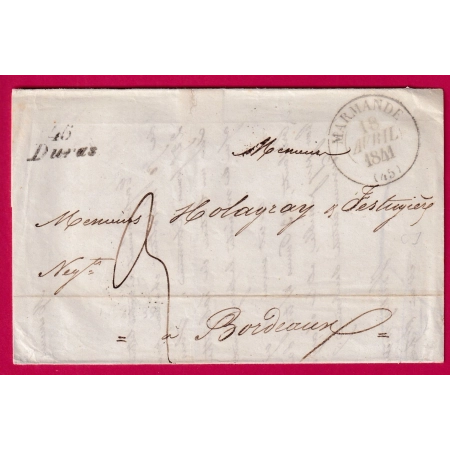 46
Duras
MARMANDE
18
AVRIL
1841
(45)
Messieurs
Messieurs Holagray & Festugière
Negts
= à Bordeaux =